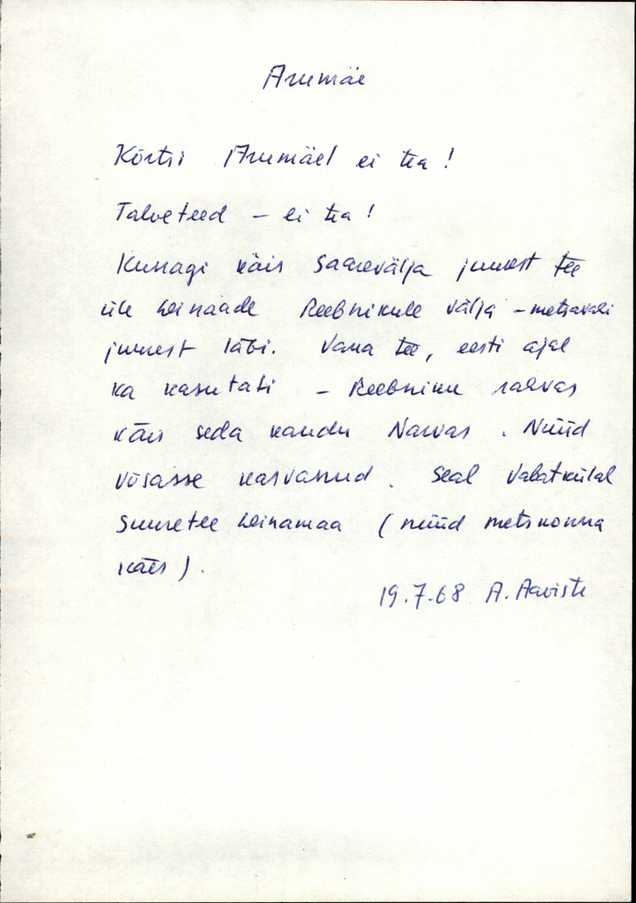 Arumäe
Kõrtsi Arumäel ei tea!
Talveteed – ei tea!
Kunagi käis Saarevälja juurest tee
üle heinaade Peebnikule välja – metsavahi
juurest läbi. Vana tee, eesti ajal
ka kasutati – Peebniku rahvas
käis seda kaudu Narvas. Nüüd
võsasse kasvanud. Seal Vabatkülal
Suuretee heinamaa (nüüd metskonna
käes).
19.7.68 A. Aaviste